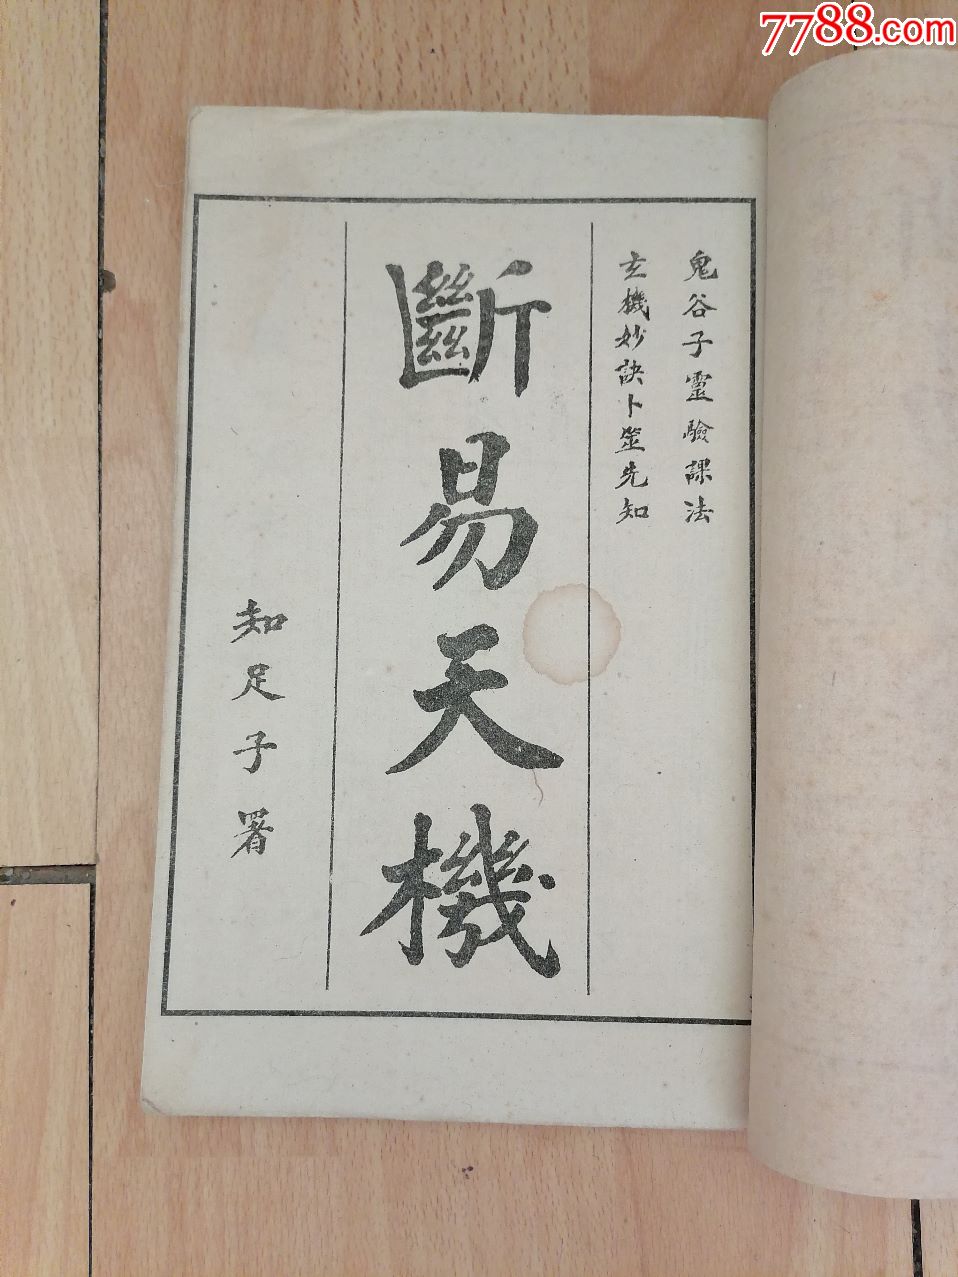 7788.com
鬼谷子靈驗課法
玄機妙訣卜筮先知
斷易天機
知足子署